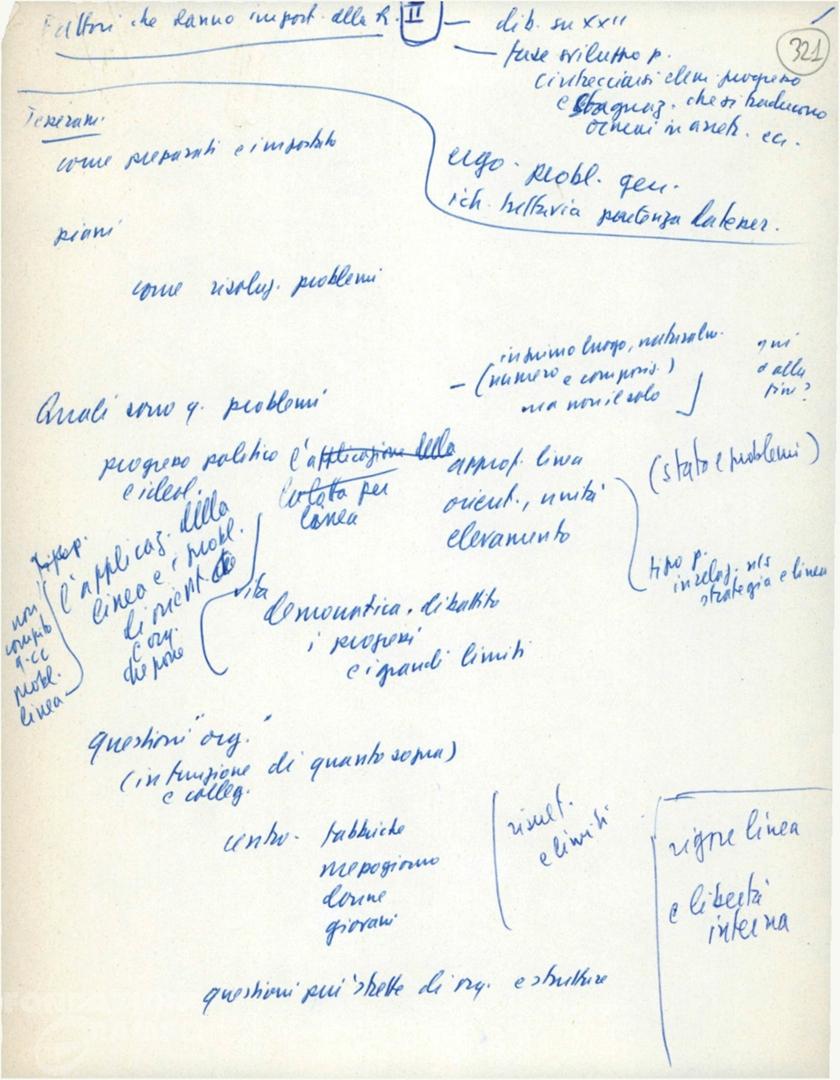 Fattori che danno import. alla R. II
— dib. su XX II
— fase sviluppo p.
321
c'intrecciarsi elem. progresso
e stagnaz. che si traducono
ormai in arretr. ecc.
ergo. probl. gen.
rich. tuttavia partenza da tesser.
Tesseram.
come preparati e impostato
piani
come risoluz. problemi
Quali sono q. problemi
— (in primo luogo, naturalm.
(numero e composiz.)
ma non il solo
qui
o alla
fine?
progresso politico
e ideol.
l'applicazione della
la lotta per
linea
approf. linea
orient., unità
elevamento
(stato e problemi)
tipo p.
in relaz. ns
strategia e linea
l'applicaz. della
linea e i probl.
di orient. che
e org.
che pone
non
compito
q. CC
probl.
linea
vita democratica. dibattito
i progressi
e i grandi limiti
questioni "org."
(in funzione di quanto sopra)
e colleg.
centro. fabbriche
mezzogiorno
donne
giovani
risult.
e limiti
rigore linea
e libertà
interna
questioni più strette di org. e strutture